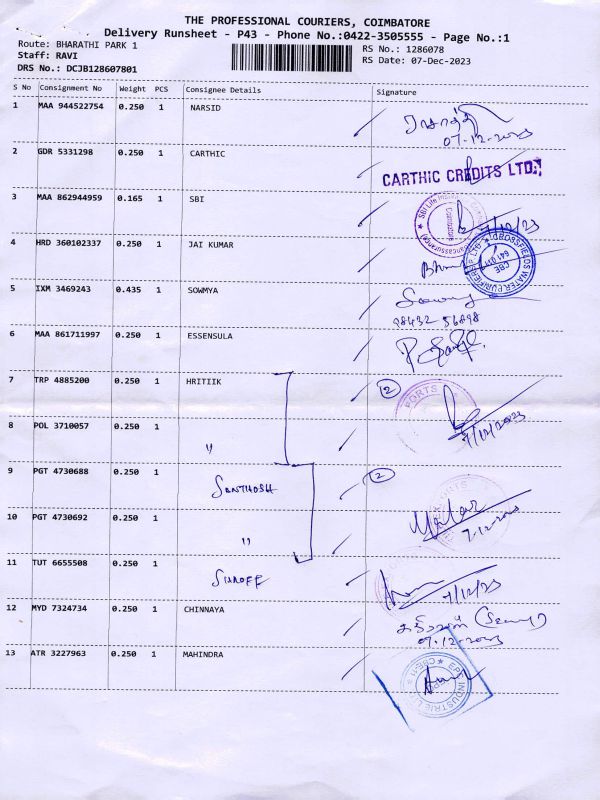 THE PROFESSIONAL COURIERS, COIMBATORE
Delivery Runsheet - P43 - Phone No.:0422-3505555 - Page No.:1
Route: BHARATHI PARK 1
Staff: RAVI
DRS No.: DCJB128607801
RS No.: 1286078
RS Date: 07-Dec-2023
S No Consignment No Weight PCS Consignee Details Signature
1 MAA 944522754 0.250 1 NARSID
07-12-2023
2 GDR 5331298 0.250 1 CARTHIC
CARTHIC CREDITS LTD.
3 MAA 862944959 0.165 1 SBI
7/12/23
4 HRD 360102337 0.250 1 JAI KUMAR
5 IXM 3469243 0.435 1 SOWMYA
98432 56898
6 MAA 861711997 0.250 1 ESSENSULA
7 TRP 4885200 0.250 1 HRITIIK 2
8 POL 3710057 0.250 1 "
7/12/2023
9 PGT 4730688 0.250 1 SANTHOSH 2
10 PGT 4730692 0.250 1 "
7-12-2023
11 TUT 6655508 0.250 1
7/12/23
12 MYD 7324734 0.250 1 CHINNAYA
07-12-2023
13 ATR 3227963 0.250 1 MAHINDRA